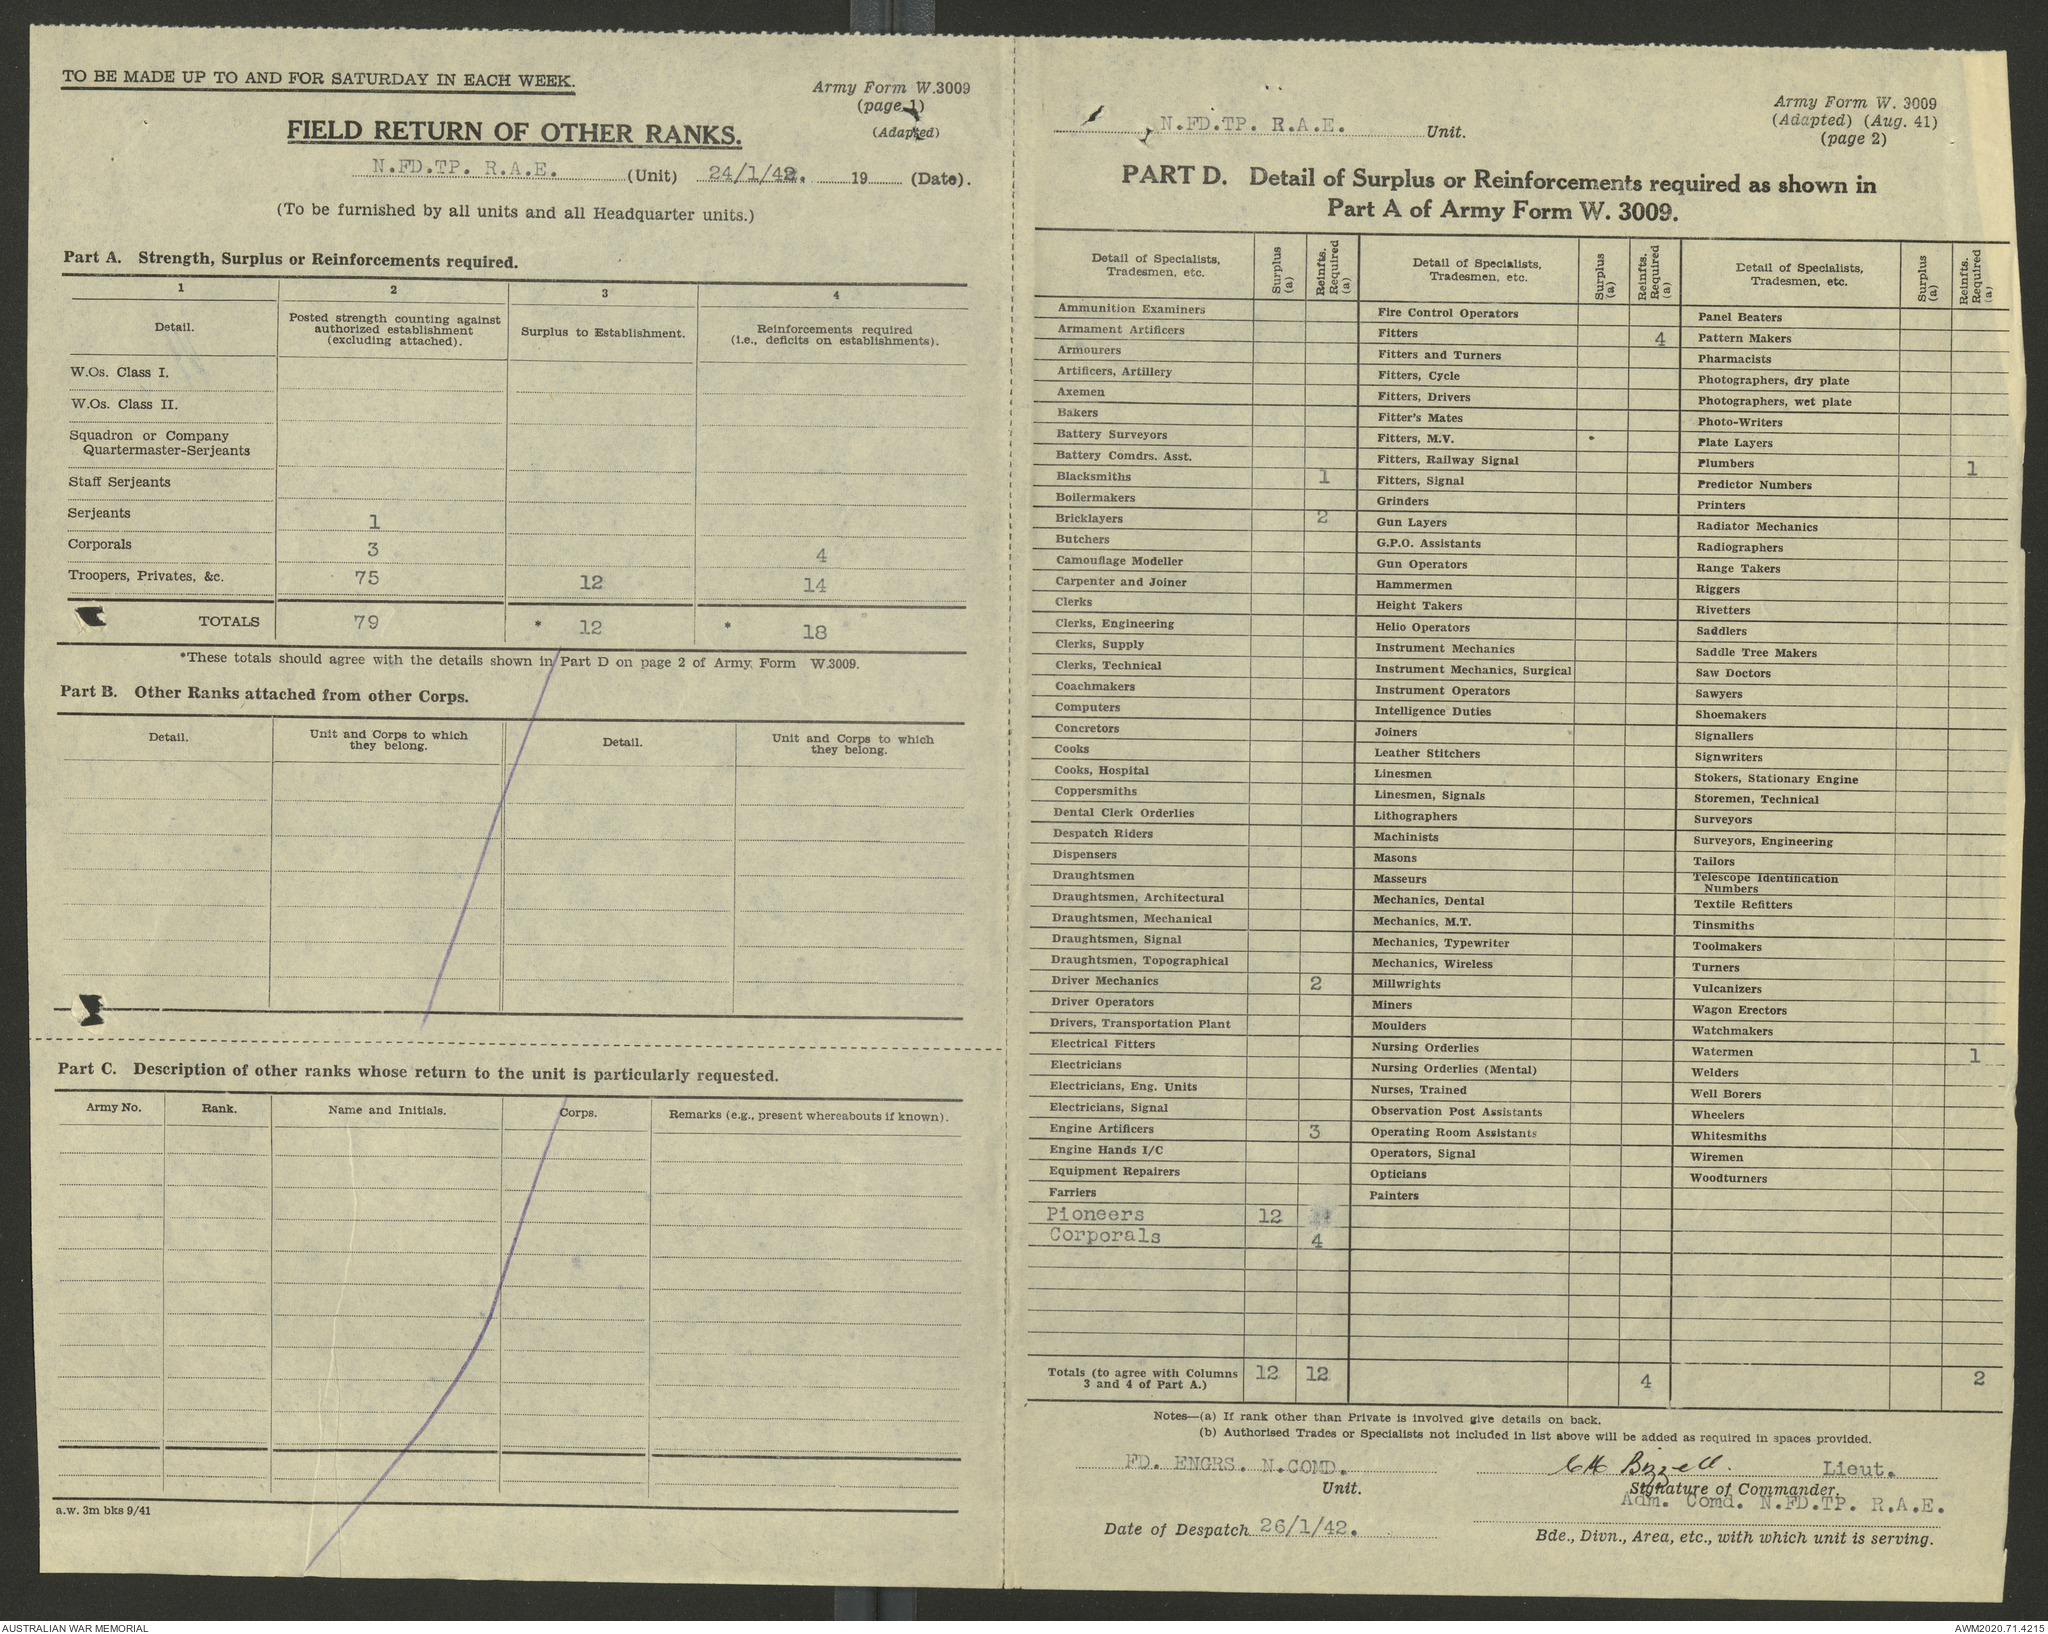 TO BE MADE UP TO AND FOR SATURDAY IN EACH WEEK.
Army Form W.3009
(page 1)
(Adapted)
FIELD RETURN OF OTHER RANKS.
N.FD.TP. R.A.E. (Unit) 24/1/42. 19 (Date).
(To be furnished by all units and all Headquarter units.)
Part A. Strength, Surplus or Reinforcements required.
1 2 3 4
Detail. Posted strength counting against authorized establishment (excluding attached). Surplus to Establishment. Reinforcements required (i.e., deficits on establishments).
W.Os. Class I.
W.Os. Class II.
Squadron or Company
Quartermaster-Serjeants
Staff Serjeants
Serjeants 1
Corporals 3 4
Troopers, Privates, &c. 75 12 14
TOTALS 79 * 12 * 18
*These totals should agree with the details shown in Part D on page 2 of Army Form W.3009.
Part B. Other Ranks attached from other Corps.
Detail. Unit and Corps to which they belong. Detail. Unit and Corps to which they belong.
Part C. Description of other ranks whose return to the unit is particularly requested.
Army No. Rank. Name and Initials. Corps. Remarks (e.g., present whereabouts if known).
a.w. 3m bks 9/41
N.FD.TP. R.A.E. Unit.
Army Form W. 3009
(Adapted) (Aug. 41)
(page 2)
PART D. Detail of Surplus or Reinforcements required as shown in
Part A of Army Form W. 3009.
Detail of Specialists, Tradesmen, etc. Surplus (a) Reinfts. Required (a)
Ammunition Examiners
Armament Artificers
Armourers
Artificers, Artillery
Axemen
Bakers
Battery Surveyors
Battery Comdrs. Asst.
Blacksmiths 1
Boilermakers
Bricklayers 2
Butchers
Camouflage Modeller
Carpenter and Joiner
Clerks
Clerks, Engineering
Clerks, Supply
Clerks, Technical
Coachmakers
Computers
Concretors
Cooks
Cooks, Hospital
Coppersmiths
Dental Clerk Orderlies
Despatch Riders
Dispensers
Draughtsmen
Draughtsmen, Architectural
Draughtsmen, Mechanical
Draughtsmen, Signal
Draughtsmen, Topographical
Driver Mechanics 2
Driver Operators
Drivers, Transportation Plant
Electrical Fitters
Electricians
Electricians, Eng. Units
Electricians, Signal
Engine Artificers 3
Engine Hands I/C
Equipment Repairers
Farriers
Pioneers 12
Corporals 4
Detail of Specialists, Tradesmen, etc. Surplus (a) Reinfts. Required (a)
Fire Control Operators
Fitters 4
Fitters and Turners
Fitters, Cycle
Fitters, Drivers
Fitter's Mates
Fitters, M.V.
Fitters, Railway Signal
Fitters, Signal
Grinders
Gun Layers
G.P.O. Assistants
Gun Operators
Hammermen
Height Takers
Helio Operators
Instrument Mechanics
Instrument Mechanics, Surgical
Instrument Operators
Intelligence Duties
Joiners
Leather Stitchers
Linesmen
Linesmen, Signals
Lithographers
Machinists
Masons
Masseurs
Mechanics, Dental
Mechanics, M.T.
Mechanics, Typewriter
Mechanics, Wireless
Millwrights
Miners
Moulders
Nursing Orderlies
Nursing Orderlies (Mental)
Nurses, Trained
Observation Post Assistants
Operating Room Assistants
Operators, Signal
Opticians
Painters
Detail of Specialists, Tradesmen, etc. Surplus (a) Reinfts. Required (a)
Panel Beaters
Pattern Makers
Pharmacists
Photographers, dry plate
Photographers, wet plate
Photo-Writers
Plate Layers
Plumbers 1
Predictor Numbers
Printers
Radiator Mechanics
Radiographers
Range Takers
Riggers
Rivetters
Saddlers
Saddle Tree Makers
Saw Doctors
Sawyers
Shoemakers
Signallers
Signwriters
Stokers, Stationary Engine
Storemen, Technical
Surveyors
Surveyors, Engineering
Tailors
Telescope Identification
Numbers
Textile Refitters
Tinsmiths
Toolmakers
Turners
Vulcanizers
Wagon Erectors
Watchmakers
Watermen 1
Welders
Well Borers
Wheelers
Whitesmiths
Wiremen
Woodturners
Totals (to agree with Columns 3 and 4 of Part A.) 12 12 4 2
Notes—(a) If rank other than Private is involved give details on back.
(b) Authorised Trades or Specialists not included in list above will be added as required in spaces provided.
FD. ENGRS. N.COMD. Unit.
C H Bizzell. Lieut.
Signature of Commander.
Adm. Comd. N.FD.TP. R.A.E.
Date of Despatch 26/1/42.
Bde., Divn., Area, etc., with which unit is serving.
AUSTRALIAN WAR MEMORIAL
AWM2020.71.4215